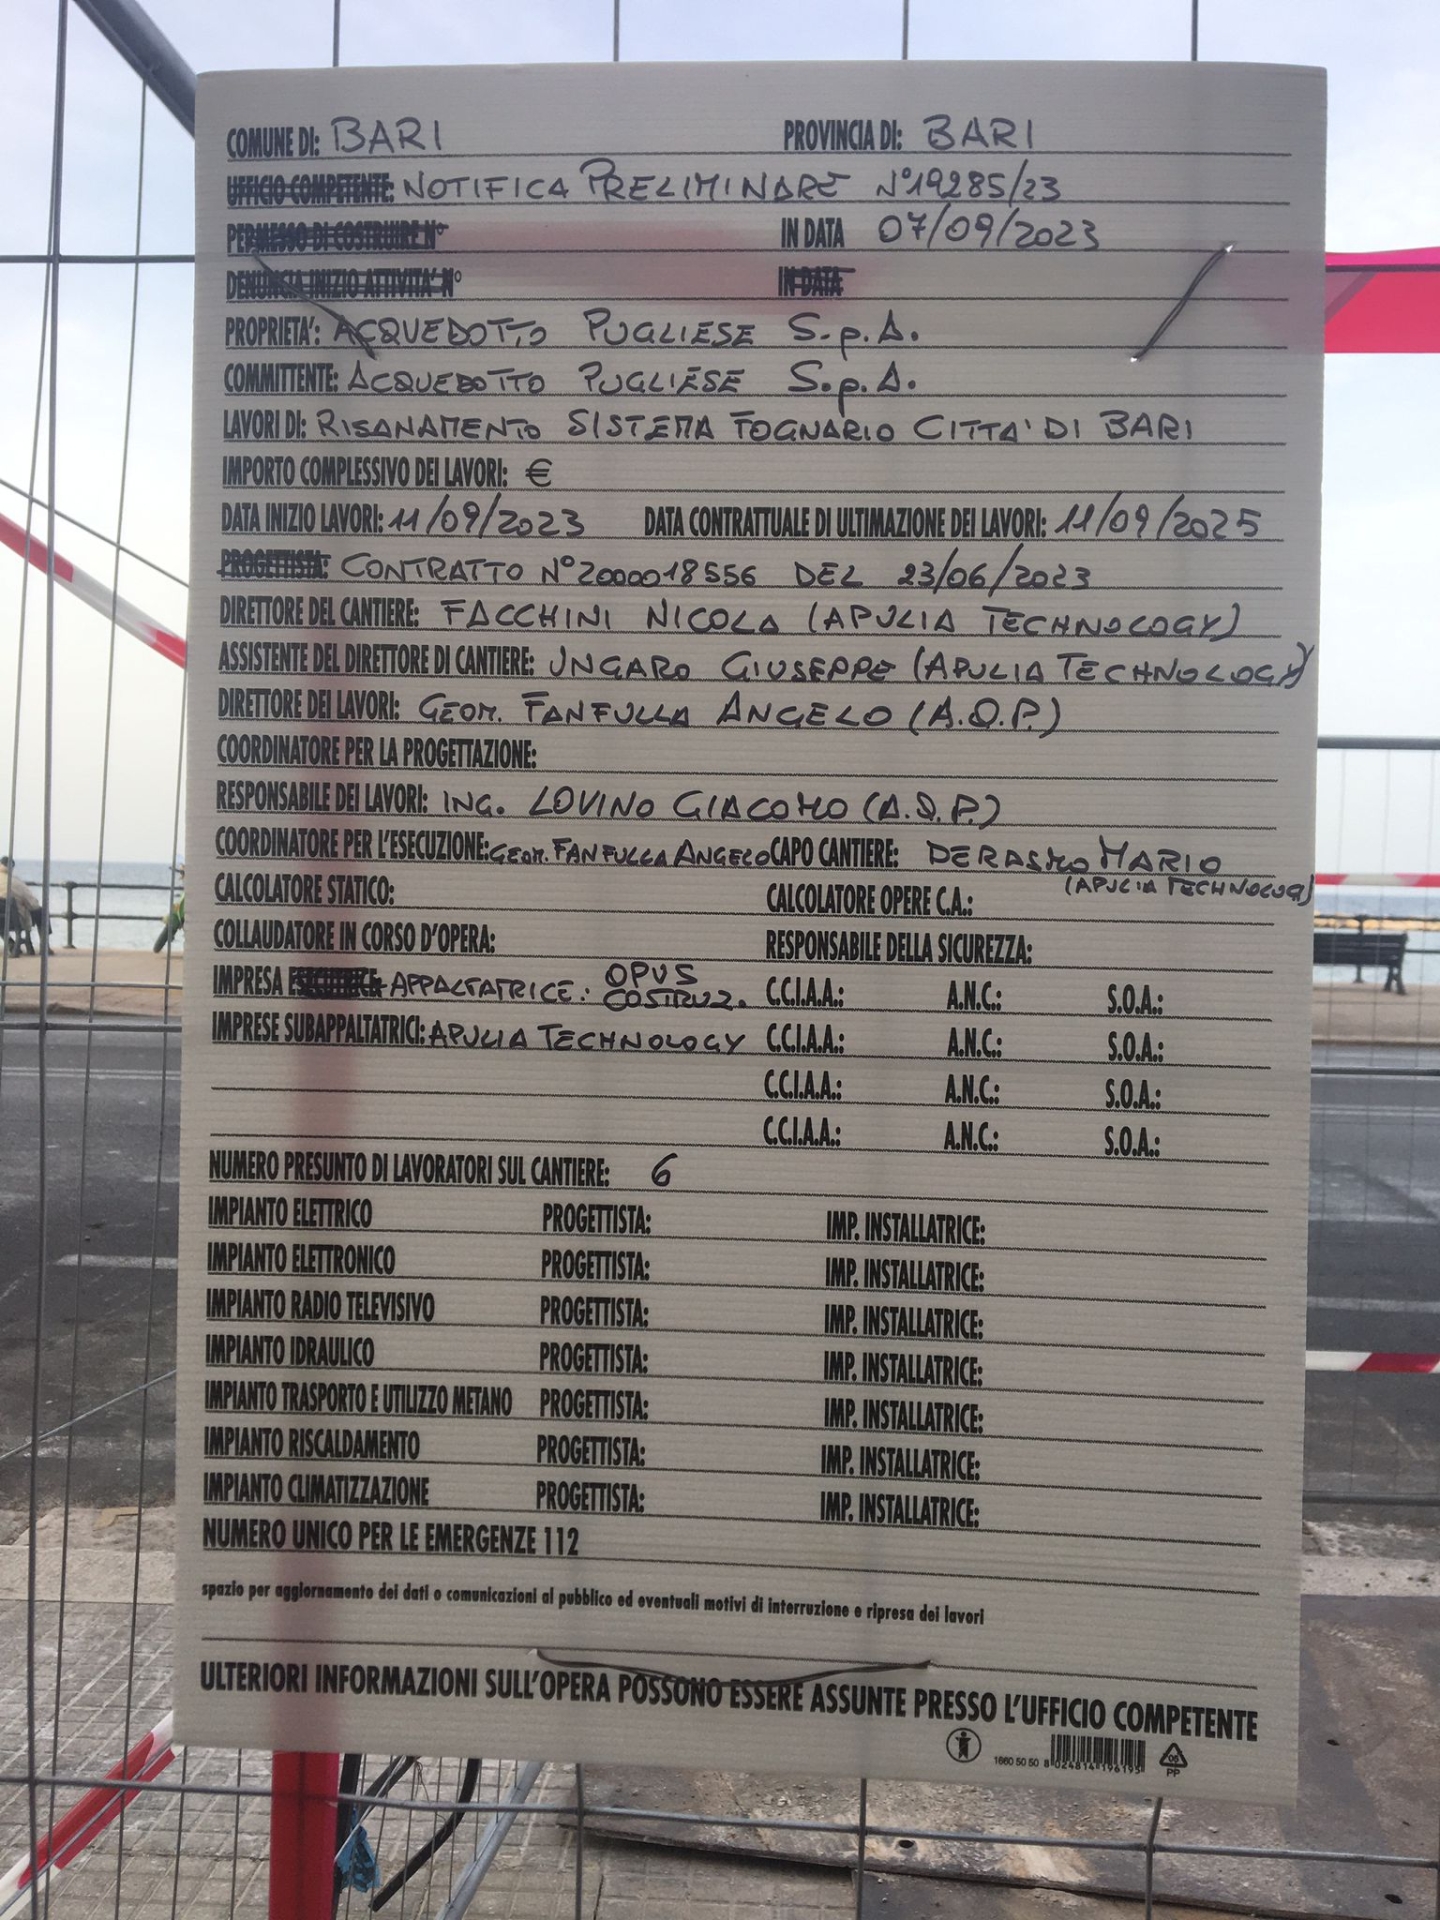 COMUNE DI: BARI PROVINCIA DI: BARI
UFFICIO COMPETENTE: NOTIFICA PRELIMINARE N°19285/23
PERMESSO DI COSTRUIRE N° IN DATA 07/09/2023
DENUNCIA INIZIO ATTIVITA' N° IN DATA
PROPRIETA': ACQUEDOTTO PUGLIESE S.p.A.
COMMITTENTE: ACQUEDOTTO PUGLIESE S.p.A.
LAVORI DI: RISANAMENTO SISTEMA FOGNARIO CITTA' DI BARI
IMPORTO COMPLESSIVO DEI LAVORI: €
DATA INIZIO LAVORI: 11/09/2023 DATA CONTRATTUALE DI ULTIMAZIONE DEI LAVORI: 11/09/2025
PROGETTISTA: CONTRATTO N°2000018556 DEL 23/06/2023
DIRETTORE DEL CANTIERE: FACCHINI NICOLA (APULIA TECHNOLOGY)
ASSISTENTE DEL DIRETTORE DI CANTIERE: UNGARO GIUSEPPE (APULIA TECHNOLOGY)
DIRETTORE DEI LAVORI: GEOM. FANFULLA ANGELO (A.Q.P.)
COORDINATORE PER LA PROGETTAZIONE:
RESPONSABILE DEI LAVORI: ING. LOVINO GIACOMO (A.Q.P.)
COORDINATORE PER L'ESECUZIONE: GEOM. FANFULLA ANGELO CAPO CANTIERE: DERASMO MARIO
(APULIA TECHNOLOGY)
CALCOLATORE STATICO: CALCOLATORE OPERE C.A.:
COLLAUDATORE IN CORSO D'OPERA: RESPONSABILE DELLA SICUREZZA:
IMPRESA ESECUTRICE: APPALTATRICE: OPUS COSTRUZ. C.C.I.A.A.: A.N.C.: S.O.A.:
IMPRESE SUBAPPALTATRICI: APULIA TECHNOLOGY C.C.I.A.A.: A.N.C.: S.O.A.:
C.C.I.A.A.: A.N.C.: S.O.A.:
C.C.I.A.A.: A.N.C.: S.O.A.:
NUMERO PRESUNTO DI LAVORATORI SUL CANTIERE: 6
IMPIANTO ELETTRICO PROGETTISTA: IMP. INSTALLATRICE:
IMPIANTO ELETTRONICO PROGETTISTA: IMP. INSTALLATRICE:
IMPIANTO RADIO TELEVISIVO PROGETTISTA: IMP. INSTALLATRICE:
IMPIANTO IDRAULICO PROGETTISTA: IMP. INSTALLATRICE:
IMPIANTO TRASPORTO E UTILIZZO METANO PROGETTISTA: IMP. INSTALLATRICE:
IMPIANTO RISCALDAMENTO PROGETTISTA: IMP. INSTALLATRICE:
IMPIANTO CLIMATIZZAZIONE PROGETTISTA: IMP. INSTALLATRICE:
NUMERO UNICO PER LE EMERGENZE 112
spazio per aggiornamento dei dati o comunicazioni al pubblico ed eventuali motivi di interruzione e ripresa dei lavori
ULTERIORI INFORMAZIONI SULL'OPERA POSSONO ESSERE ASSUNTE PRESSO L'UFFICIO COMPETENTE
1660 50 50 8 024814 196195 05
PP